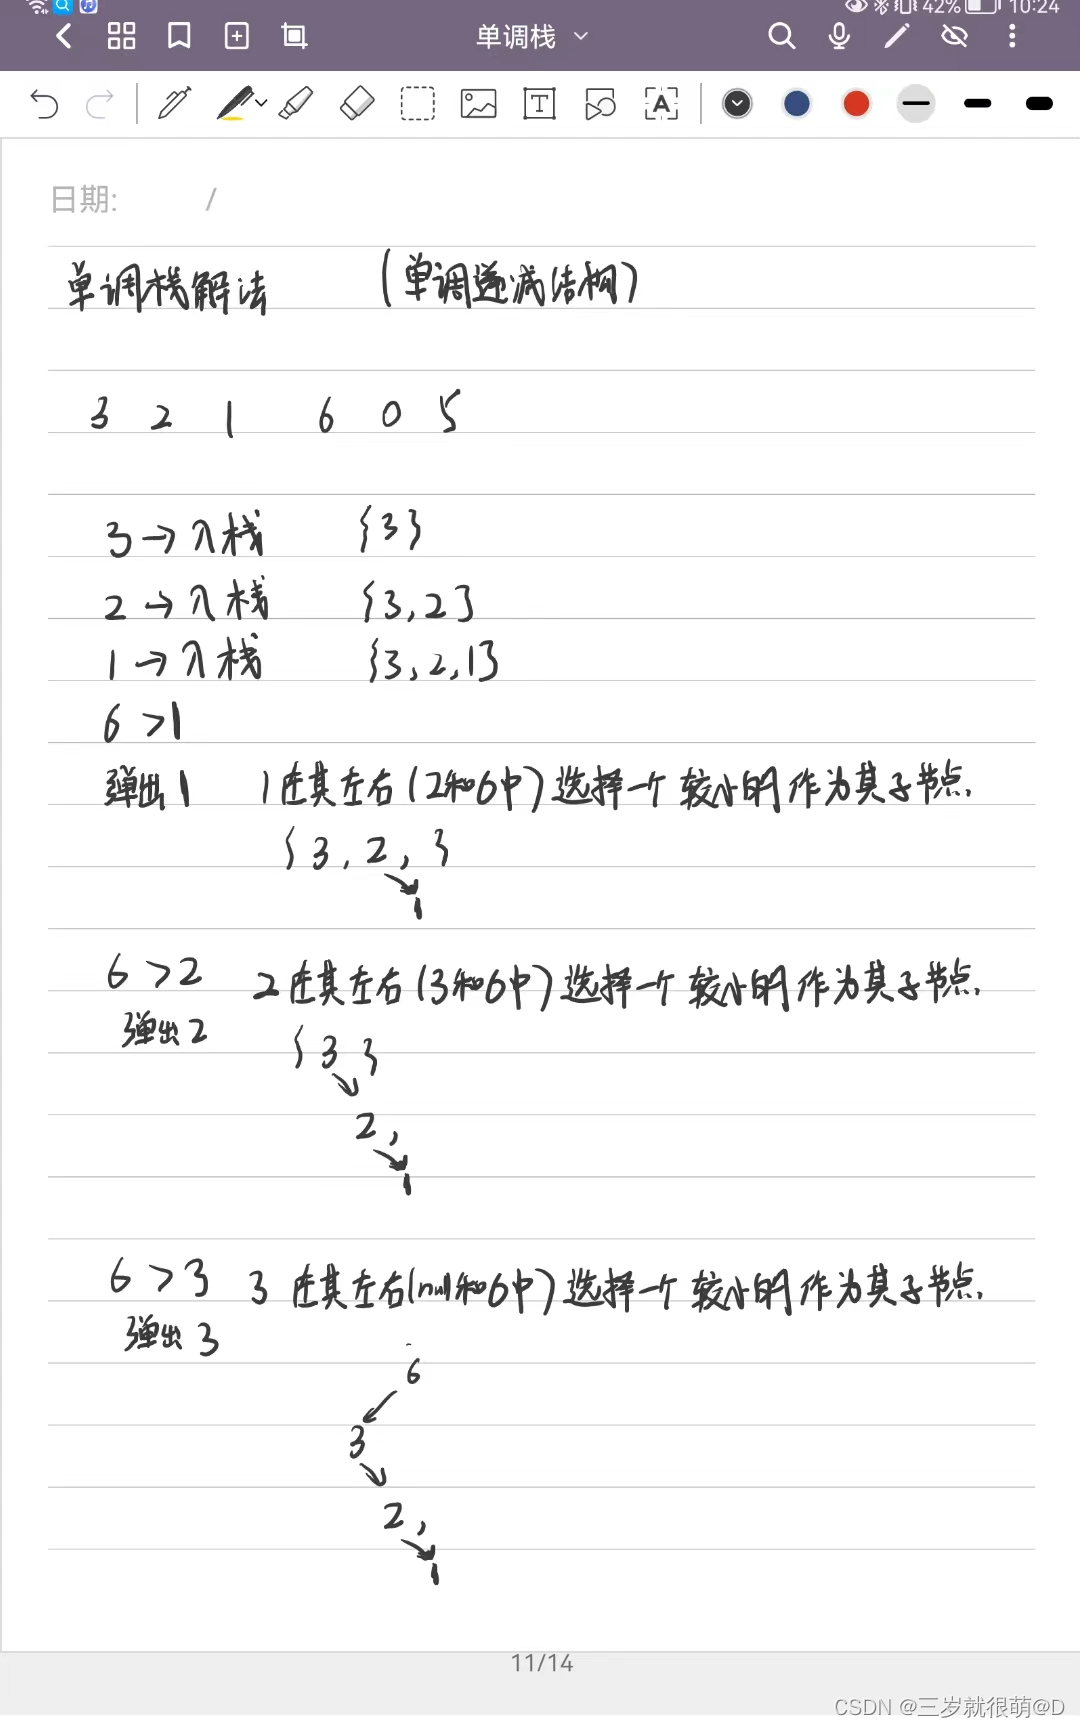 42% 10:24
单调栈
T A
日期: /
单调栈解法 (单调递减结构)
3 2 1 6 0 5
3→入栈 {3}
2→入栈 {3,2}
1→入栈 {3,2,1}
6>1
弹出1 1在其左右(2和6中)选择一个较小的作为其子节点.
{3,2,}
1
6>2 2在其左右(3和6中)选择一个较小的作为其子节点.
弹出2
{3}
2,
1
6>3 3在其左右(null和6中)选择一个较小的作为其子节点.
弹出3
6
3
2,
1
11/14
CSDN @三岁就很萌@D